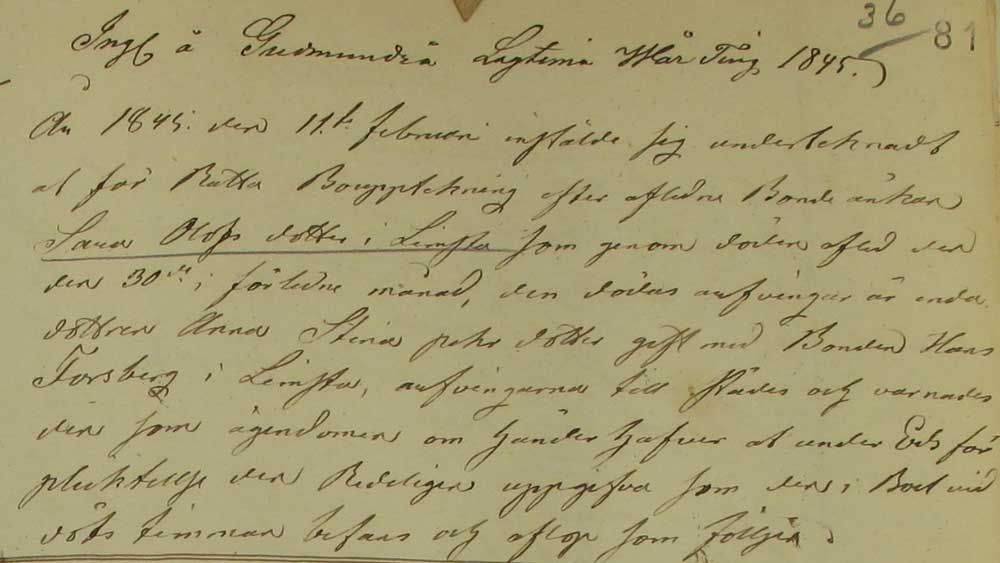 36
81
Ingf å Gudmundrå Lagtima Wår Ting 1845.
År 1845. den 11.te februari instälde sig underteknadt
at för Rätta Boupptekning efter aflidne Bonde änkan
Sara Olofs dotter i Limsta som genom döden afled den
den 30de i förledne månad, den dödas arfvingar är enda
dottren Anna Stina pehr dotter gift med Bonden Hans
Forsberg i Limsta, arfvingarna till städes och varnades
den som ägendomen om händer hafver at under Eds för
pliktellse den Redeligen uppgifva som den i Boet vid
döds timmar befans och aflop som fölljer